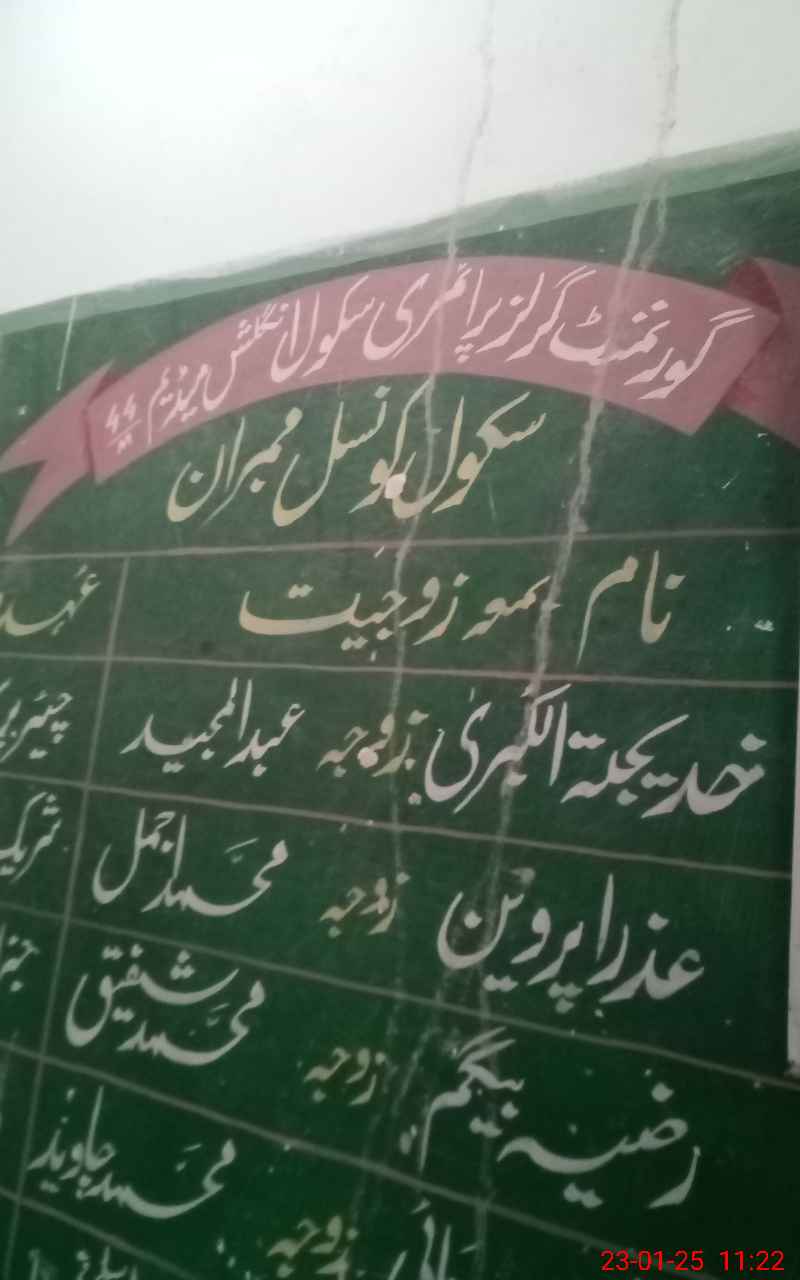 گورنمنٹ گرلز پرائمری سکول انگلش میڈیم
سکول کونسل ممبران
نام بمعہ زوجیت
خدیجتہ الکبریٰ زوجہ عبدالمجید
عذرا پروین زوجہ محمد اجمل شریک
رضیہ بیگم زوجہ محمد شفیق
زوجہ محمد جاوید
23-01-25 11:22